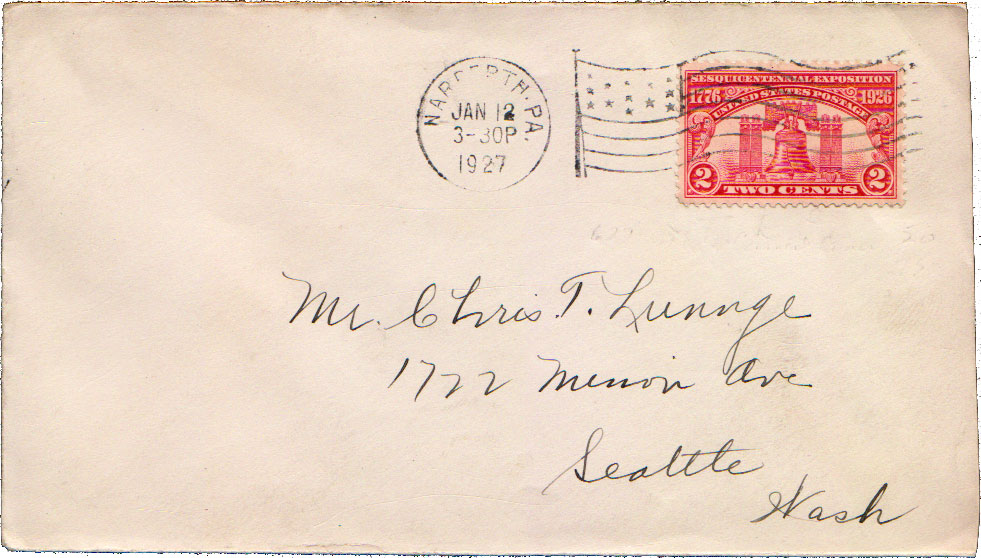 NARBERTH·PA.
JAN 12
3-30P
1927
SESQUICENTENNIAL EXPOSITION
1776 UNITED STATES POSTAGE 1926
2 TWO CENTS 2
Mr. Chris. T.
1722 Ave
Seattle
Wash